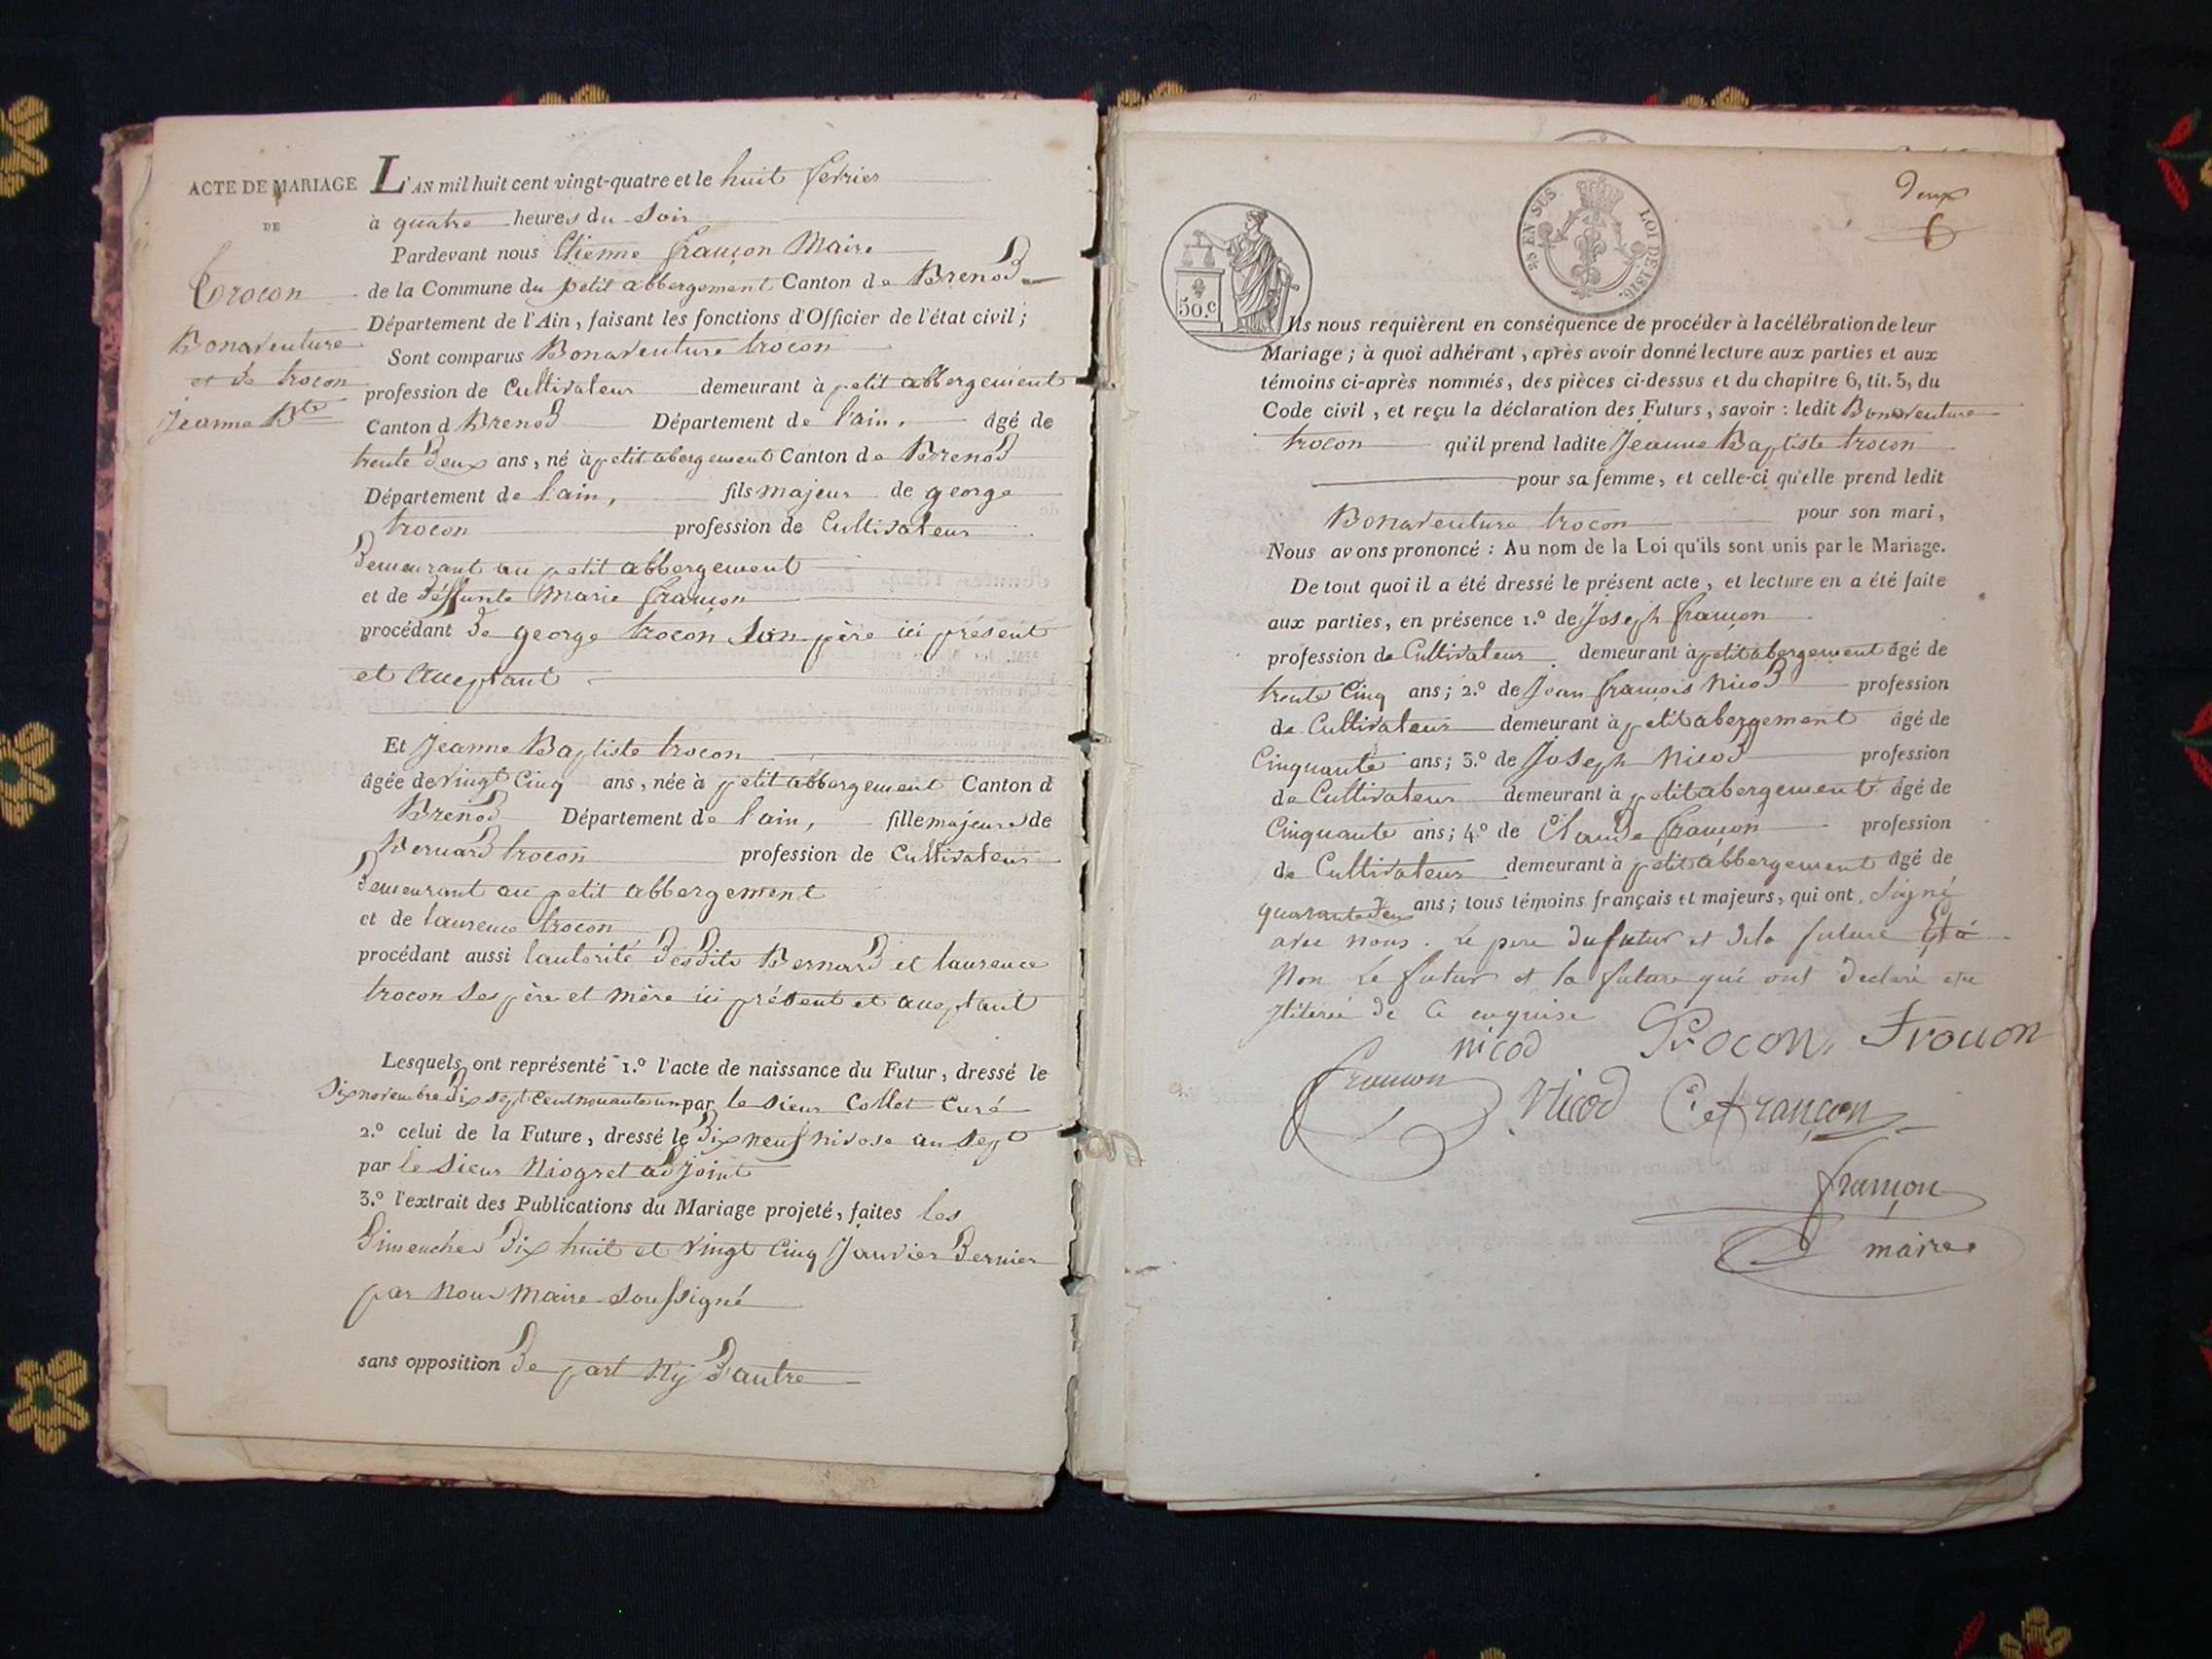 ACTE DE MARIAGE
DE
trocon
Bonaventure
et de trocon
Jeanne Bte
L'AN mil huit cent vingt-quatre et le huit fevrier
à quatre heures du Soir
Pardevant nous Etienne françon Maire
de la Commune du petit abbergement Canton de Brenod
Département de l'Ain, faisant les fonctions d'Officier de l'état civil;
Sont comparus Bonaventure trocon
profession de Cultivateur demeurant à petit abbergement
Canton d Brenod Département de l'ain, âgé de
trente deux ans, né à petit abergement Canton de Brenod
Département de l'ain, fils majeur de george
trocon profession de Cultivateur
demeurant au petit abbergement
et de déffunte Marie françon
procédant de george trocon Son père ici présent
et acceptant
Et Jeanne Baptiste trocon
âgée de vingt Cinq ans, née à petit abbergement Canton d
Brenod Département de l'ain, fille majeure de
Bernard trocon profession de Cultivateur
demeurant au petit abbergement
et de laurence trocon
procédant aussi l'autorité desdits Bernard et laurence
trocon Ses père et mère ici présent et acceptant
Lesquels ont représenté 1.º l'acte de naissance du Futur, dressé le
dix novembre dix sept cent nonante un par le Sieur Collet Curé
2.º celui de la Future, dressé le dix neuf nivose an sept
par le Sieur Niogret adjoint
3.º l'extrait des Publications du Mariage projeté, faites les
dimenches dix huit et vingt Cinq Janvier dernier
par Nous Maire Soussigné
sans opposition de part Ny d'autre
deux
50.c
25 EN SUS LOI DE 1816.
Ils nous requièrent en conséquence de procéder à la célébration de leur
Mariage; à quoi adhérant, après avoir donné lecture aux parties et aux
témoins ci-après nommés, des pièces ci-dessus et du chapitre 6, tit. 5, du
Code civil, et reçu la déclaration des Futurs, savoir : ledit Bonaventure
trocon qu'il prend ladite Jeanne Baptiste trocon
pour sa femme, et celle-ci qu'elle prend ledit
Bonaventure trocon pour son mari,
Nous avons prononcé : Au nom de la Loi qu'ils sont unis par le Mariage.
De tout quoi il a été dressé le présent acte, et lecture en a été faite
aux parties, en présence 1.º de Joseph françon
profession de Cultivateur demeurant à petit abergement âgé de
trente Cinq ans; 2.º de Jean françois Nicod profession
de Cultivateur demeurant à petit abergement âgé de
Cinquante ans; 3.º de Joseph Nicod profession
de Cultivateur demeurant à petit abergement âgé de
Cinquante ans; 4.º de Claude françon profession
de Cultivateur demeurant à petit abbergement âgé de
quarante deux ans; tous témoins français et majeurs, qui ont Signé
avec nous. Le pere du futur et de la future
Non Le futur et la future qui ont declaré etre
de ce enquise
nicod Trocon Trocon
françon Nicod Cefrançon
françon
maire